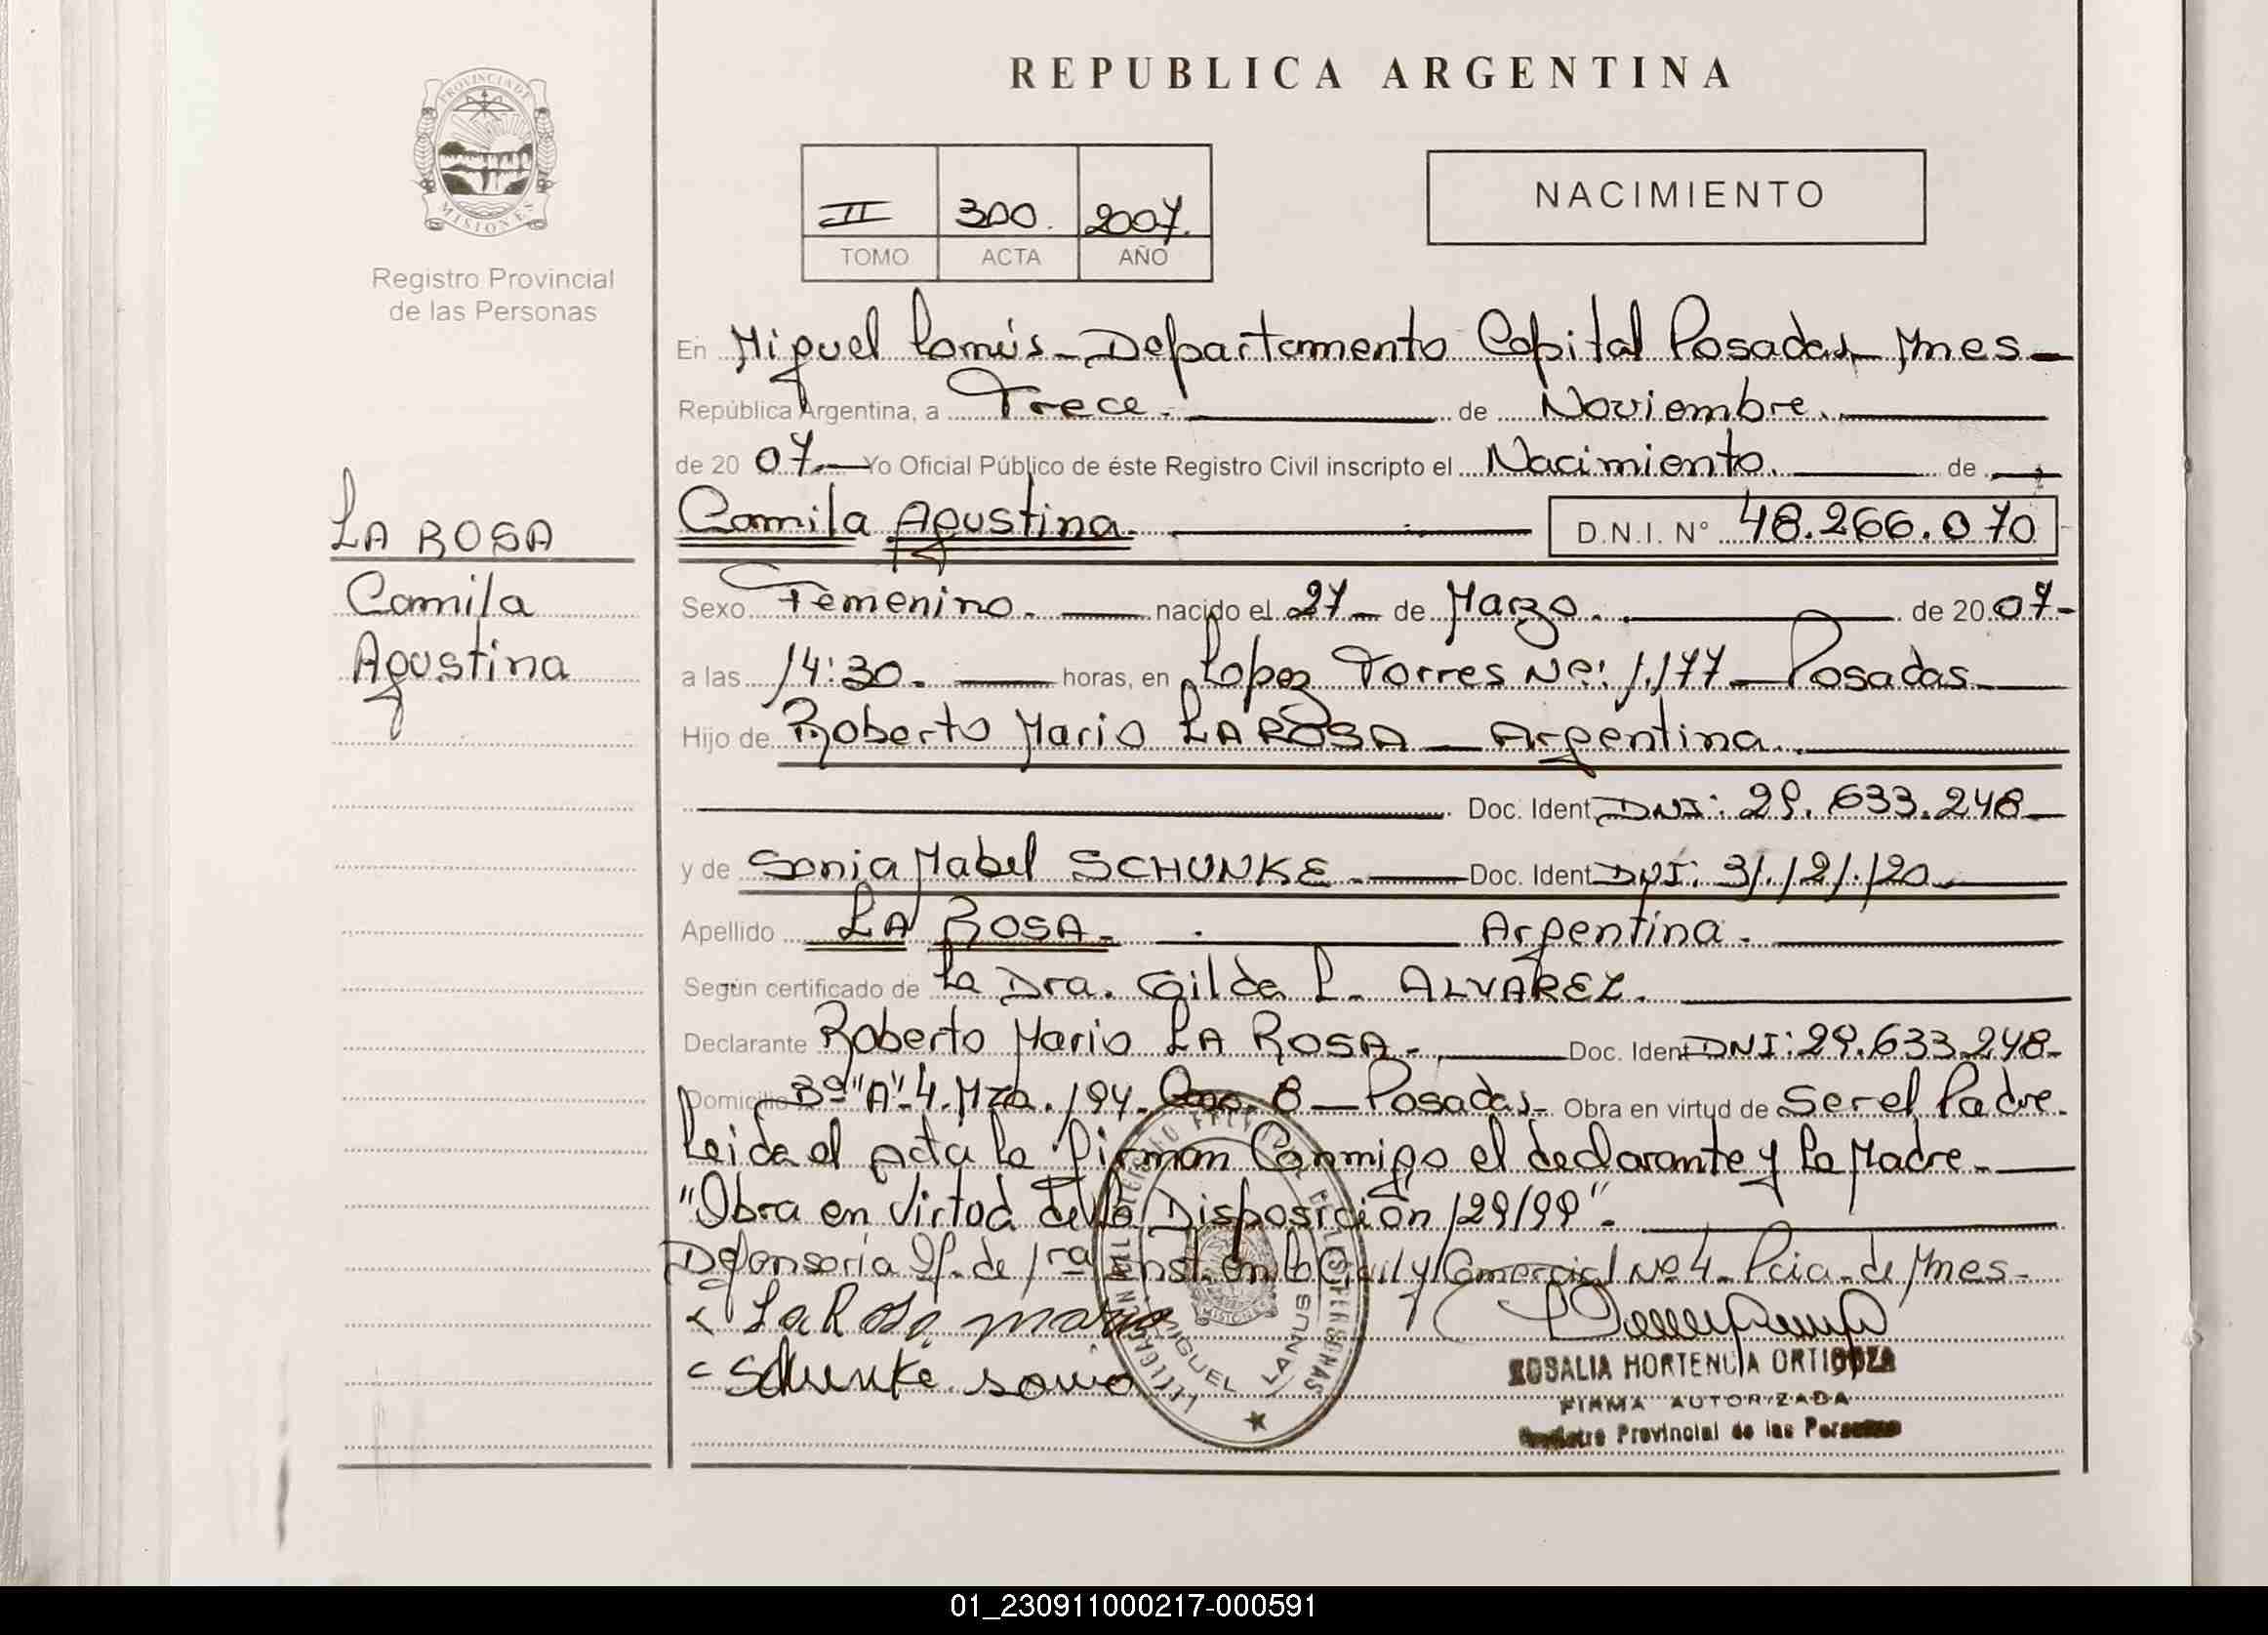 REPUBLICA ARGENTINA
PROVINCIA DE
MISIONES
Registro Provincial
de las Personas
II 300. 2007.
TOMO ACTA AÑO
NACIMIENTO
En Miguel Lanús - Departamento Capital Posadas - Mnes -
República Argentina, a Trece. de Noviembre.
de 20 07.- Yo Oficial Público de éste Registro Civil inscripto el Nacimiento. de
Camila Agustina. D.N.I. N° 48.266.070
LA ROSA
Camila
Agustina
Sexo Femenino. nacido el 27 - de Marzo. de 20 07-
a las 14:30. horas, en Lopez Torres Nº: 1.177 - Posadas
Hijo de Roberto Mario LA ROSA - Argentina.
Doc. Ident DNI: 29.633.248
y de Sonia Mabel SCHUNKE. Doc. Ident DNI: 31.121.120
Apellido LA ROSA. Argentina.
Según certificado de La Dra. Gilda L. ALVAREZ.
Declarante Roberto Mario LA ROSA. Doc. Ident DNI: 29.633.248-
Domicilio Bº "A"-4. Mza. 194. Casa. 8 - Posadas - Obra en virtud de Ser el Padre.
Leida el acta la firman Conmigo el declarante y la Madre.
"Obra en Virtud de la Disposición 129/99".
Defensoria Of. de 1ra Inst. en lo Civil y Comercial Nº 4. Pcia. de Mnes -
La Rosa mario
Schunke sonia
MIGUEL LANUS
ROSALIA HORTENCIA ORTIGOZA
FIRMA AUTORIZADA
Registro Provincial de las Personas
01_230911000217-000591